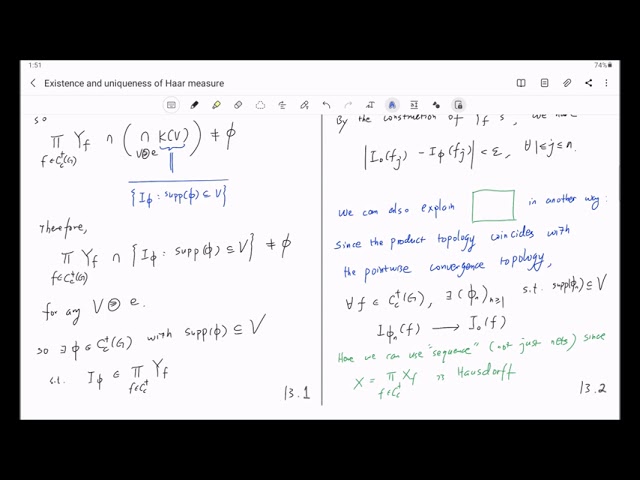 1:51
74%
Existence and uniqueness of Haar measure
so
∏ Y_f ∩ ( ∩ K(V) ) ≠ ϕ
f∈C_c^+(G) V∋e
{ I_ϕ : supp(ϕ) ⊆ V }
Therefore,
∏ Y_f ∩ { I_ϕ : supp(ϕ) ⊆ V } ≠ ϕ
f∈C_c^+(G)
for any V∋e.
so ∃ϕ∈C_c^+(G) with supp(ϕ) ⊆ V
s.t. I_ϕ ∈ ∏ Y_f
f∈C_c^+
13.1
By the construction of Y_f's, we have
| I_0(f_j) - I_ϕ(f_j) | < ε, ∀ 1≤j≤n.
We can also explain in another way:
Since the product topology coincides with
the pointwise convergence topology,
∀ f ∈ C_c^+(G), ∃ (ϕ_n)_{n≥1} s.t. supp(ϕ_n) ⊆ V
I_{ϕ_n}(f) → I_0(f)
Here we can use "sequence" (not just nets) since
X = ∏ X_f is Hausdorff
f∈C_c^+
13.2